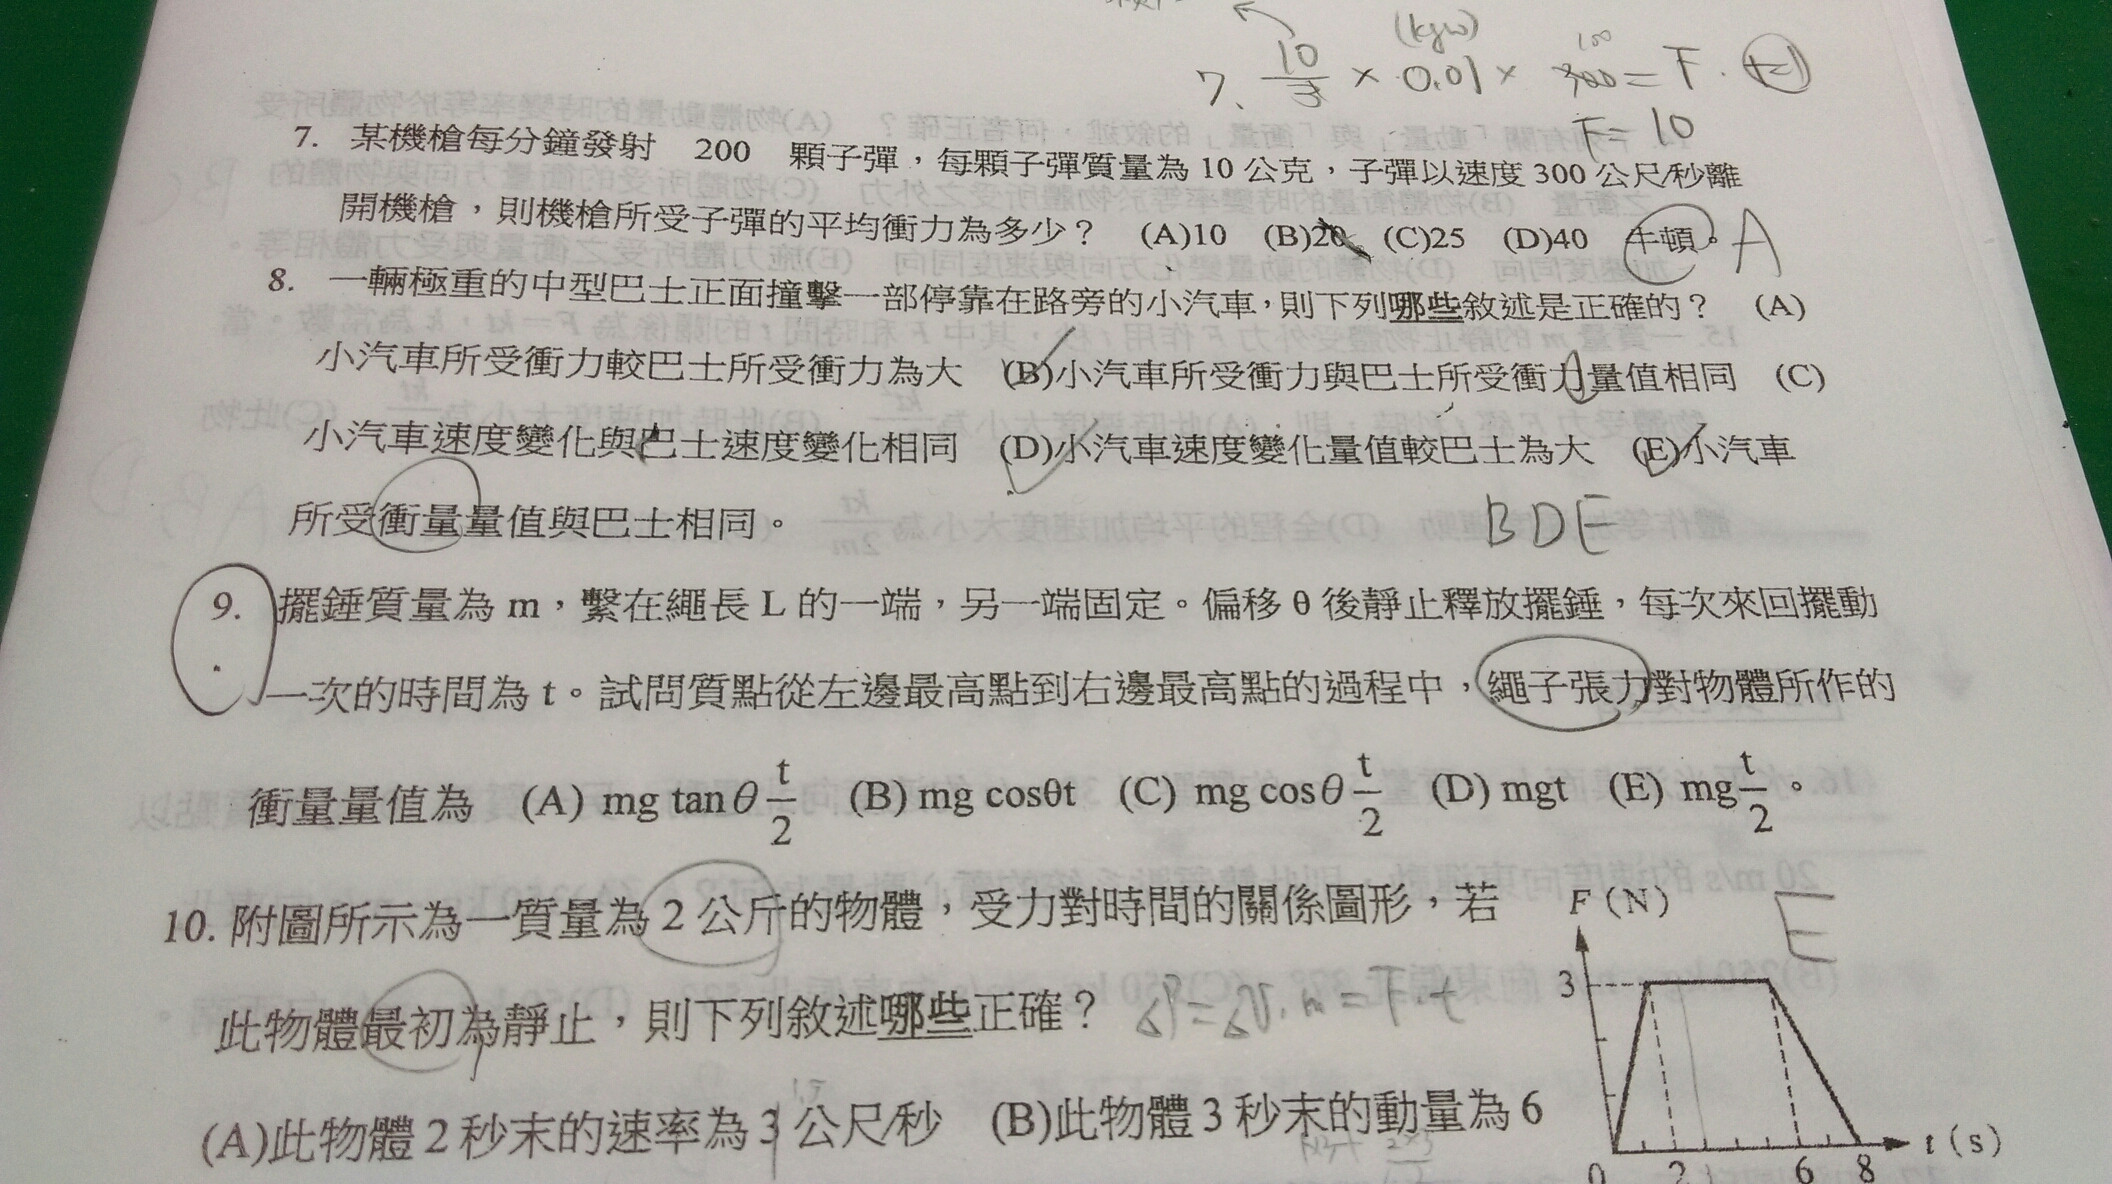 (kgw)
7. 10/3 × 0.01 × 300 100 = F · t=1
F = 10
7. 某機槍每分鐘發射 200 顆子彈，每顆子彈質量為 10 公克，子彈以速度 300 公尺/秒離
開機槍，則機槍所受子彈的平均衝力為多少？ (A)10 (B)20 (C)25 (D)40 牛頓。 A
8. 一輛極重的中型巴士正面撞擊一部停靠在路旁的小汽車，則下列哪些敘述是正確的？ (A)
小汽車所受衝力較巴士所受衝力為大 (B)小汽車所受衝力與巴士所受衝力量值相同 (C)
小汽車速度變化與巴士速度變化相同 (D)小汽車速度變化量值較巴士為大 (E)小汽車
所受衝量量值與巴士相同。 BDE
9. 擺錘質量為 m，繫在繩長 L 的一端，另一端固定。偏移 θ 後靜止釋放擺錘，每次來回擺動
一次的時間為 t。試問質點從左邊最高點到右邊最高點的過程中，繩子張力對物體所作的
衝量量值為 (A) mg tanθ t/2 (B) mg cosθt (C) mg cosθ t/2 (D) mgt (E) mg t/2。
E
10. 附圖所示為一質量為 2 公斤的物體，受力對時間的關係圖形，若
此物體最初為靜止，則下列敘述哪些正確？ ΔP=ΔV·m=F·t
1.5
(A)此物體 2 秒末的速率為 3 公尺/秒 (B)此物體 3 秒末的動量為 6
F (N)
3
t (s)
0 2 6 8